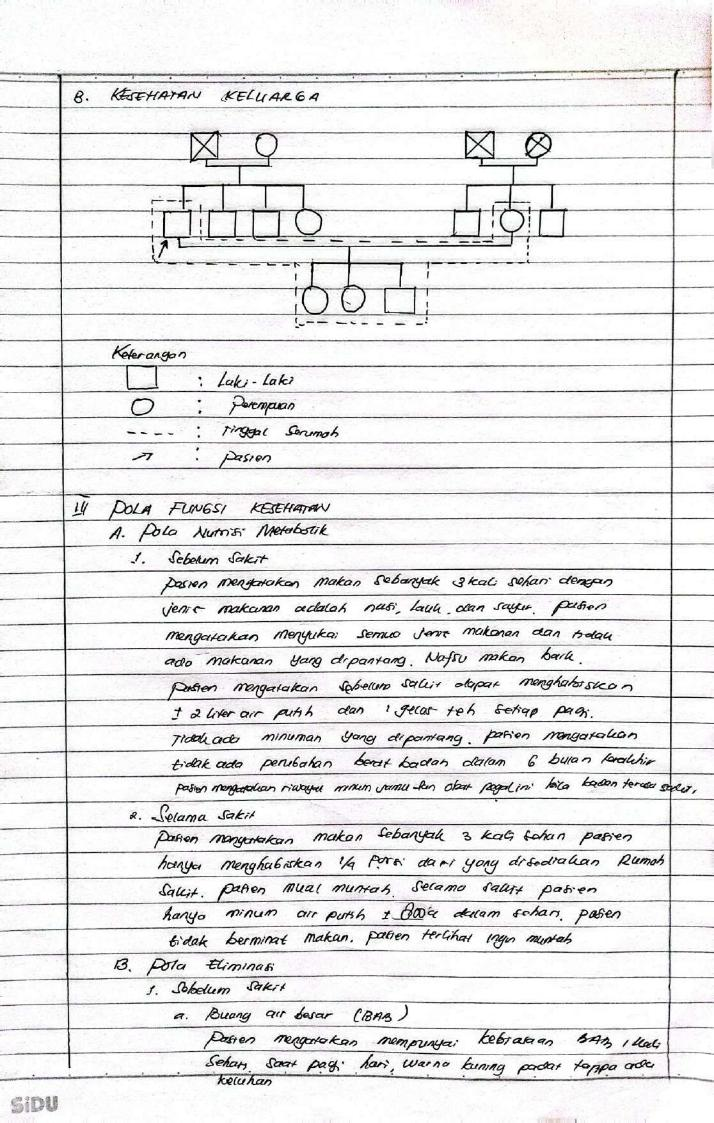 B. KESEHATAN KELUARGA
Keterangan
: Laki-Laki
: Perempuan
: Tinggal Serumah
: pasien
III POLA FUNGSI KESEHATAN
A. Pola Nutrisi Metabolik
1. Sebelum Sakit
pasien mengatakan makan sebanyak 3 kali sehari dengan
jenis makanan adalah nasi, lauk, dan sayur. pasien
mengatakan menyukai semua jenis makanan dan tidak
ada makanan yang dipantang. Nafsu makan baik.
pasien mengatakan sebelum sakit dapat menghabiskan
± 2 liter air putih dan 1 gelas teh setiap pagi.
Tidak ada minuman yang dipantang. pasien mengatakan
tidak ada perubahan berat badan dalam 6 bulan terakhir
pasien mengatakan riwayat minum jamu dan obat pegal ini bila badan terasa sakit.
2. Selama sakit
pasien mengatakan makan sebanyak 3 kali sehari pasien
hanya menghabiskan 1/4 porsi dari yang disediakan Rumah
Sakit. pasien mual muntah. Selama sakit pasien
hanya minum air putih ± dalam sehari. pasien
tidak berminat makan. pasien terlihat ingin muntah
B. Pola Eliminasi
1. Sebelum sakit
a. Buang air besar (BAB)
Pasien mengatakan mempunyai kebiasaan BAB 1 kali
Sehari, saat pagi hari, warna kuning padat tanpa ada
keluhan
SiDU